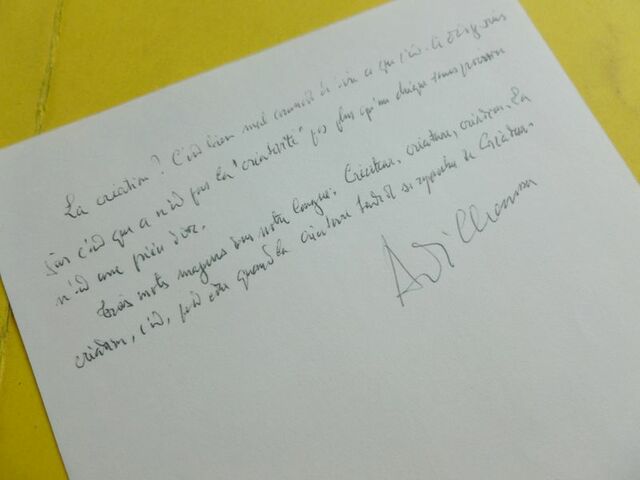 La création ? C'est bien mal de dire ce que c'est. Ce suis
sûr c'est que ce n'est pas la "créativité" pas plus qu'un chèque sans provision
n'est une pièce d'or.
Trois mots dans notre langue : Créateur, créature, création. La
création, c'est, peut-être quand la créature se du Créateur.